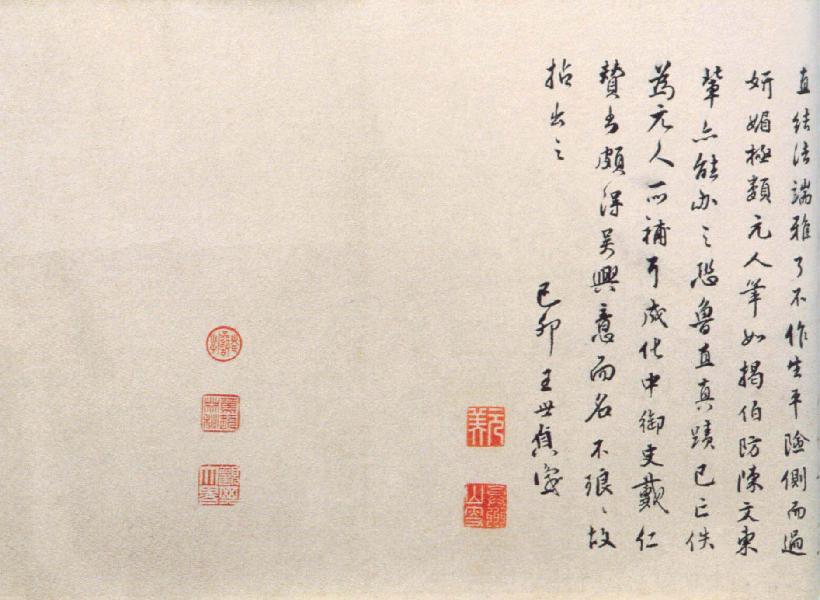 直結法端雅了不作生平險側而過
妍媚極類元人筆如揭伯防陳文東
輩亦能办之恐魯直真蹟已亡佚
為元人所補耳成化中御史戴仁
贊書頗得吳興意而名不琅〻故
拈出之
己卯王世貞識
元美